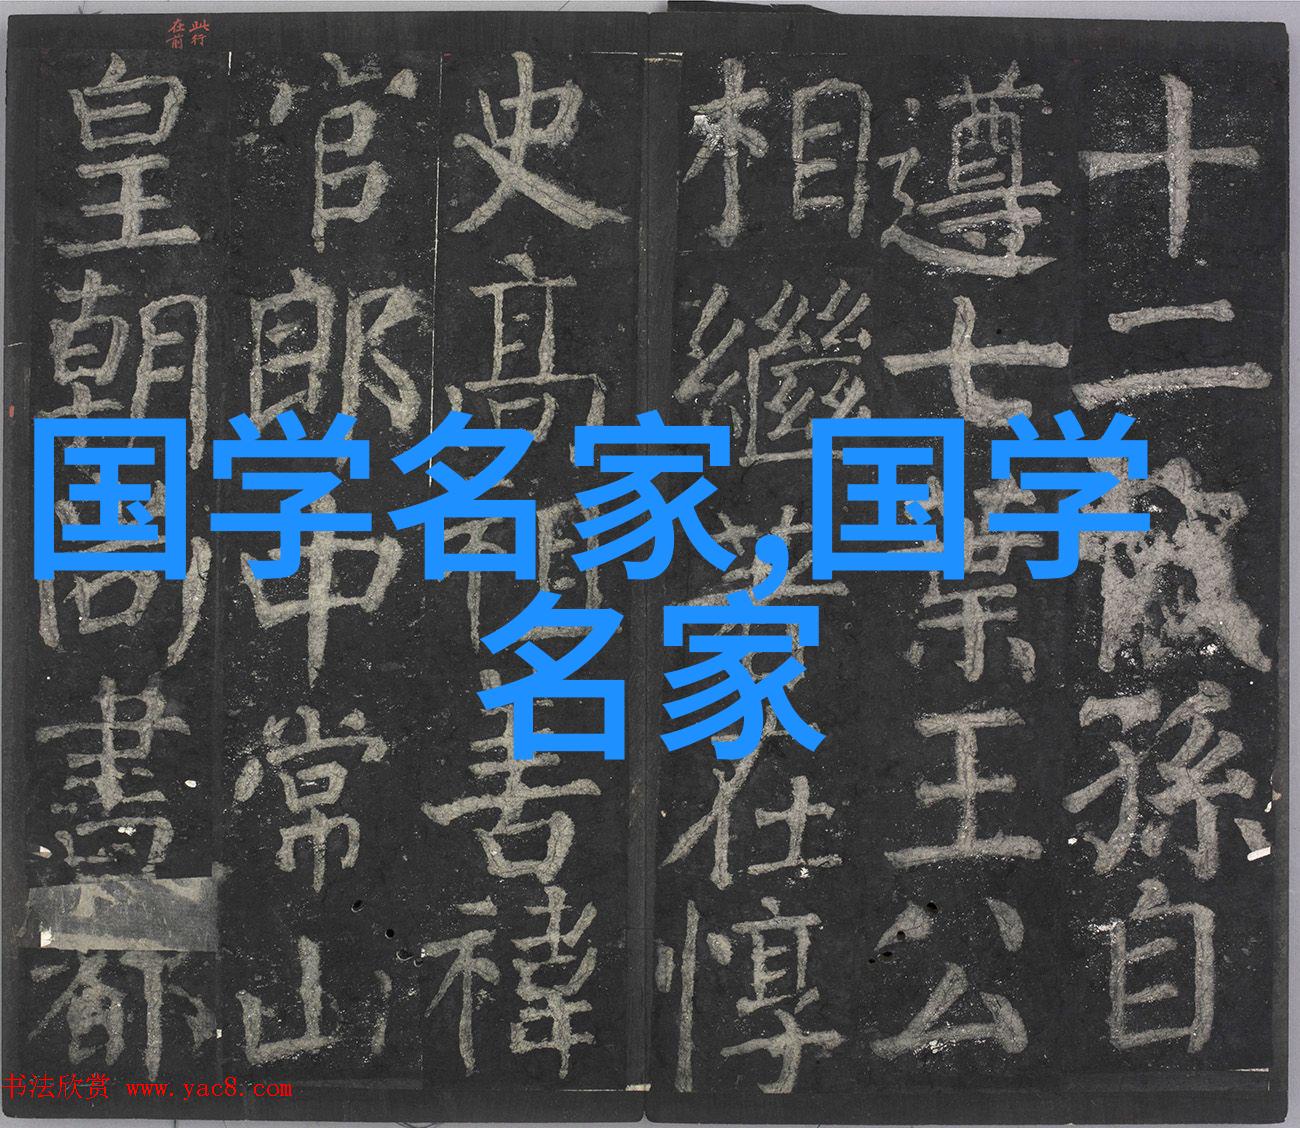 此行
在前
十二孫自
遵七葉王公
相繼在惇
史高祖書禕
官郎中常山
皇朝尚書都
国学名家,国学
名家
书法欣赏 www.yac8.com